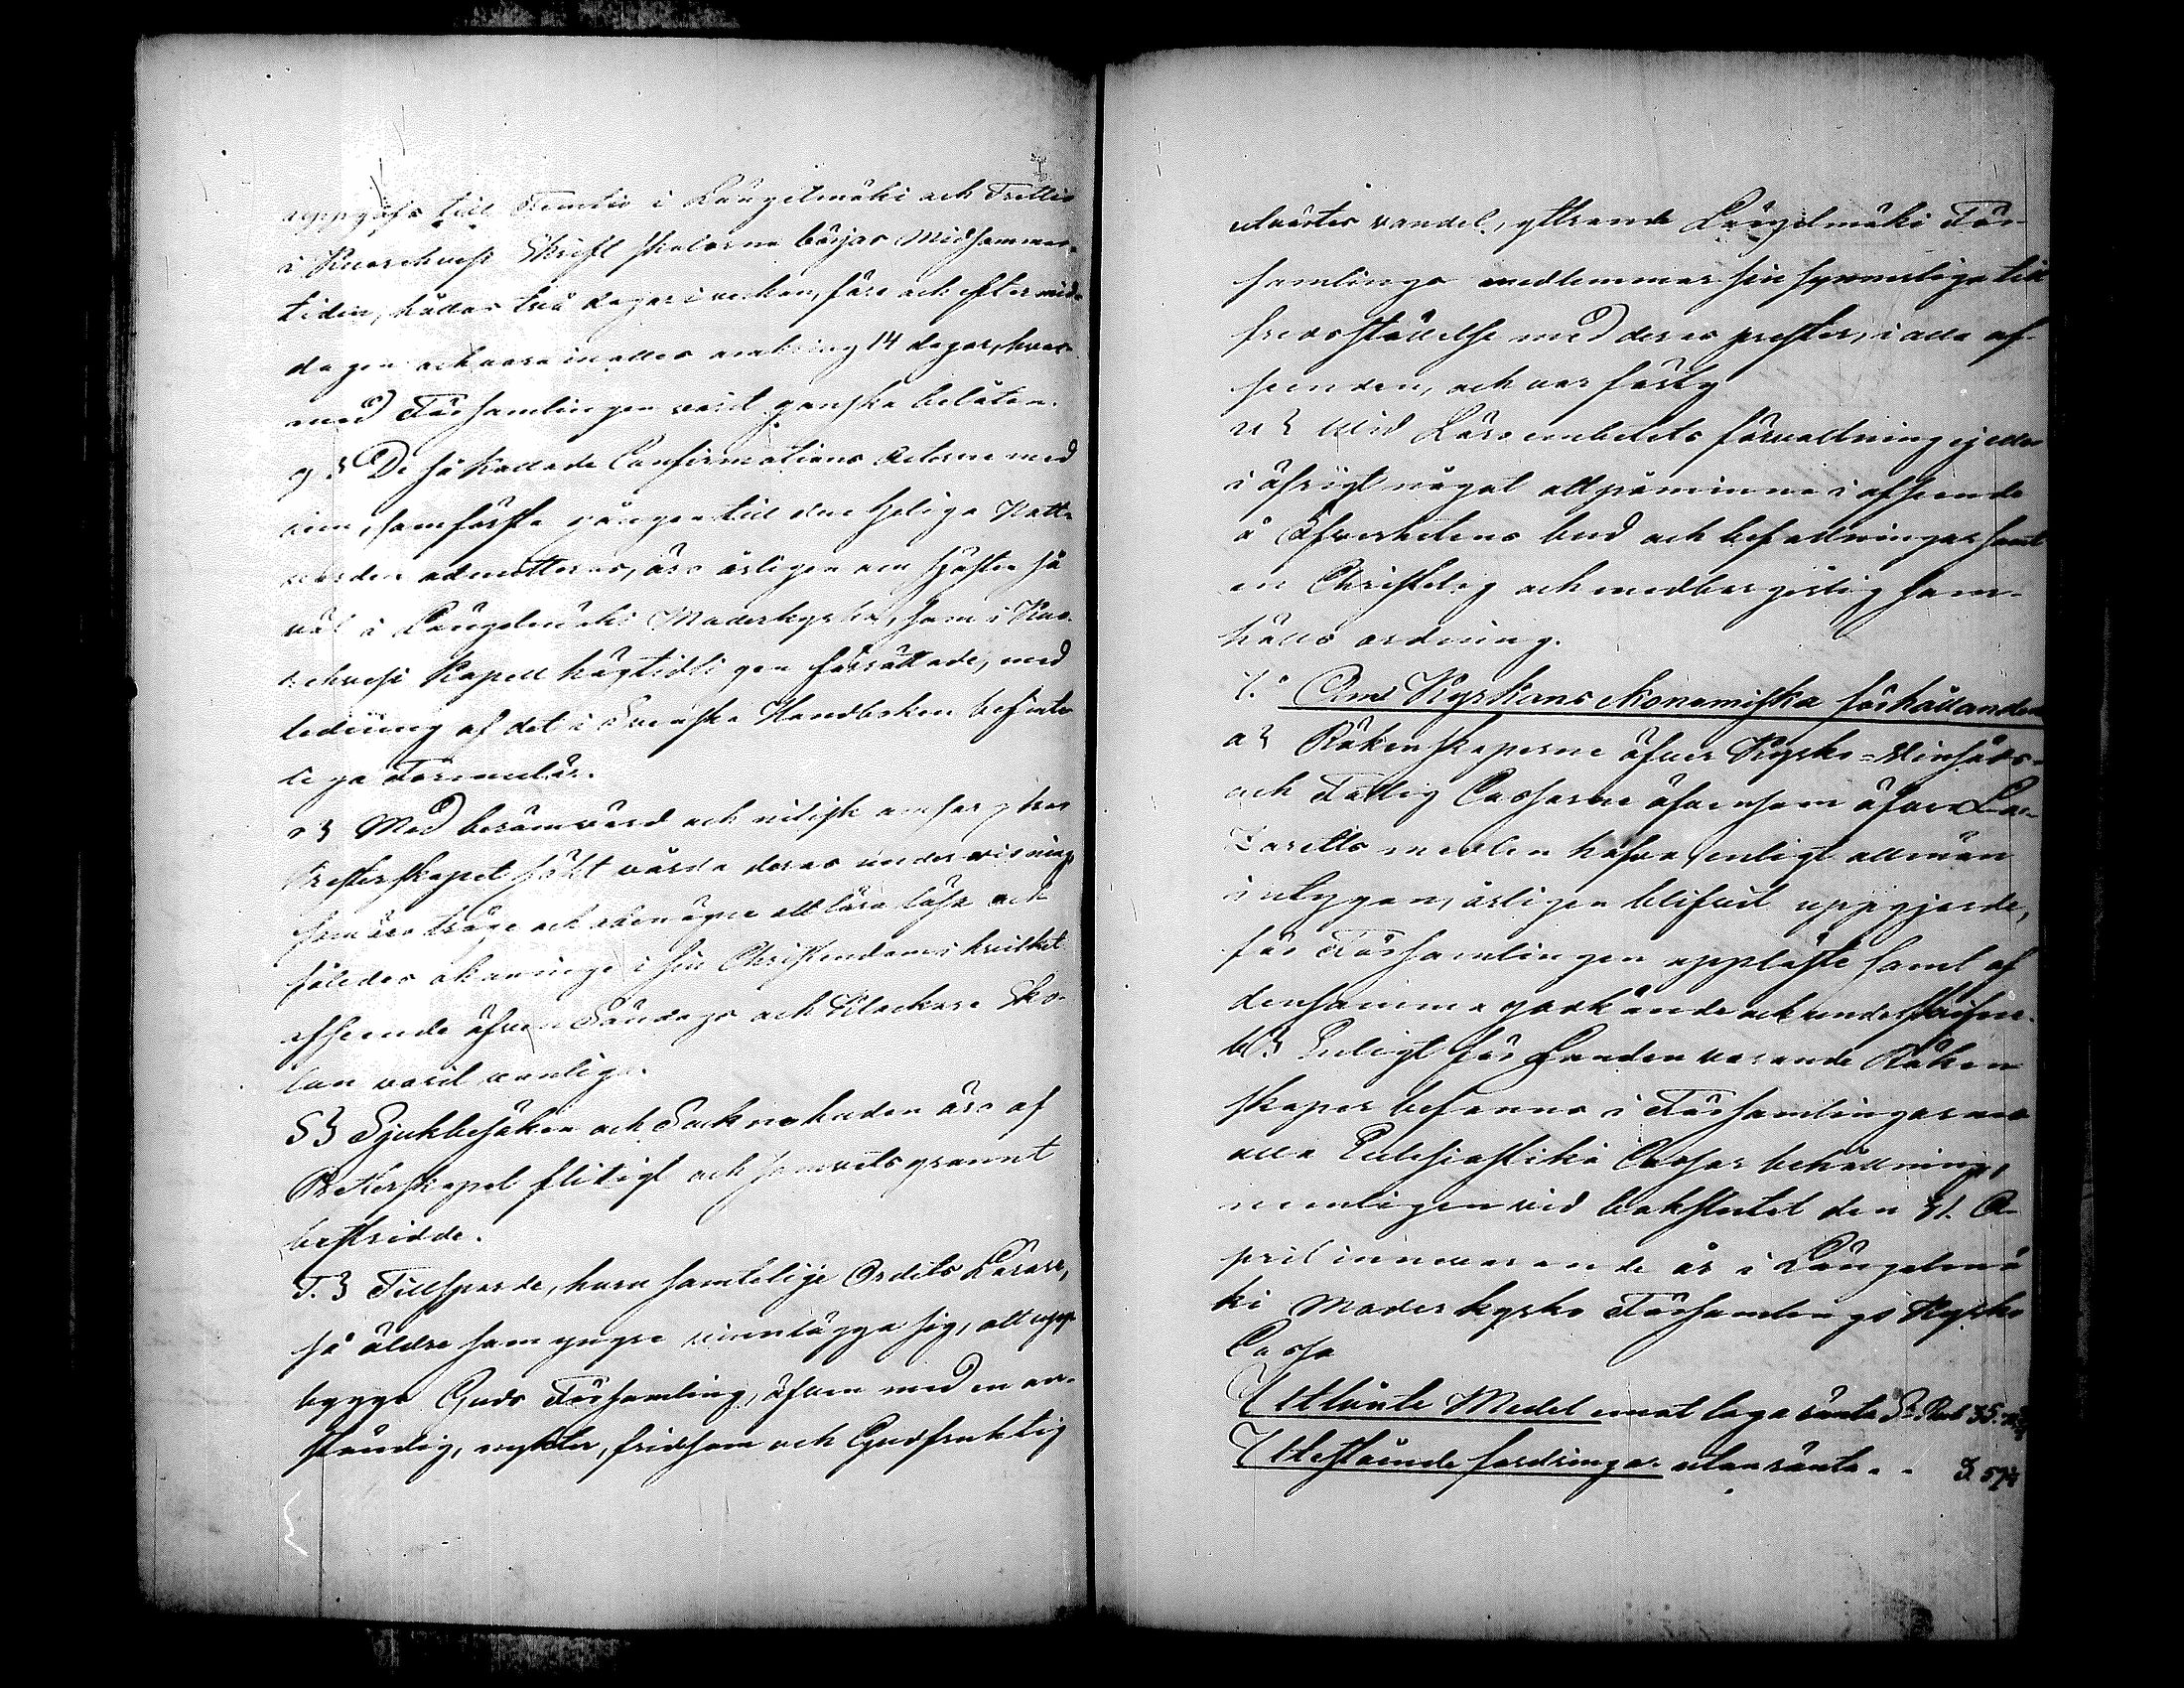 uppgifs till Femtio i Längelmäki och Trettio
i Kuorehvesi Skriftskolorna börjas Midsommars
tiden, hållas två dagar i veckan, före och eftermid-
dagen och vara inalles omkring 14 dagar, hvar-
med Församlingen vard ganska belåten.
q § De så kallade Confirmations Acterne med
dem, som första gången till den heliga Natt-
varden admitteras, äro årligen om hösten så
väl i Längelmäki Moderkyrka, som i Kuo-
rehvesi Kapell högtidligen förrättade, med
ledning af det i Svenska Handboken befinte-
liga Formulär.
r § Med berömvärd och nitisk omsorg har
Presterskapet sökt vårda deras undervisning
som äro tröge och oförmögne att lära läsa och
således okunnige i sin Christendom i hvilket
afseende äfven Söndags och Klockare Sko-
lan varit vanlige.
S § Sjukbesöken och Socknebuden äro af
Presterskapet flitigt och samvetsgrannt
bestridde.
T. § Tillsporde, huru samtelige Ordets Lärare,
så äldre som yngre vinnlägga sig, att upp-
bygga Guds Församling, äfven med en an-
ständig, nykter, fridsam och Gudfruktig
utvärtes vandel, yttrande Längelmäki För-
samlings medlemmar sin synnerliga till
fredsställelse med deras prester, i alla af-
seenden, och var
u § Vid Läroembetets förvaltning ej eller
i öfrigt något att påminna i afseende
å Öfverhetens bud och befallningar samt
en Christelig och medborgerlig sam-
hälls ordning.
7.° Om Kyrkans ekonomiska förhållanden
a § Räkenskaperne öfver Kyrko- Vinsäds-
och Fattig Cassorne äfvensom öfver La-
zaretts medlen hafva, enligt allmän
intygan, årligen blifvit uppgjorde,
för Församlingen uppläste samt af
densamma godkände och underskrifne.
b § Enligt för handen varande Räken
skaper befanns i Församlingarnes
alla Eclesiastika Cassor behållning,
nemligen vid bokslutet den 31. A-
pril innevarande år i Längelmä
ki Moderkyrko Församlings Kyrko
Cassa
Utlånte Medel emot laga ränta S:r Rub 35.
Utestående fordringar utan ränta . . 3. 57½